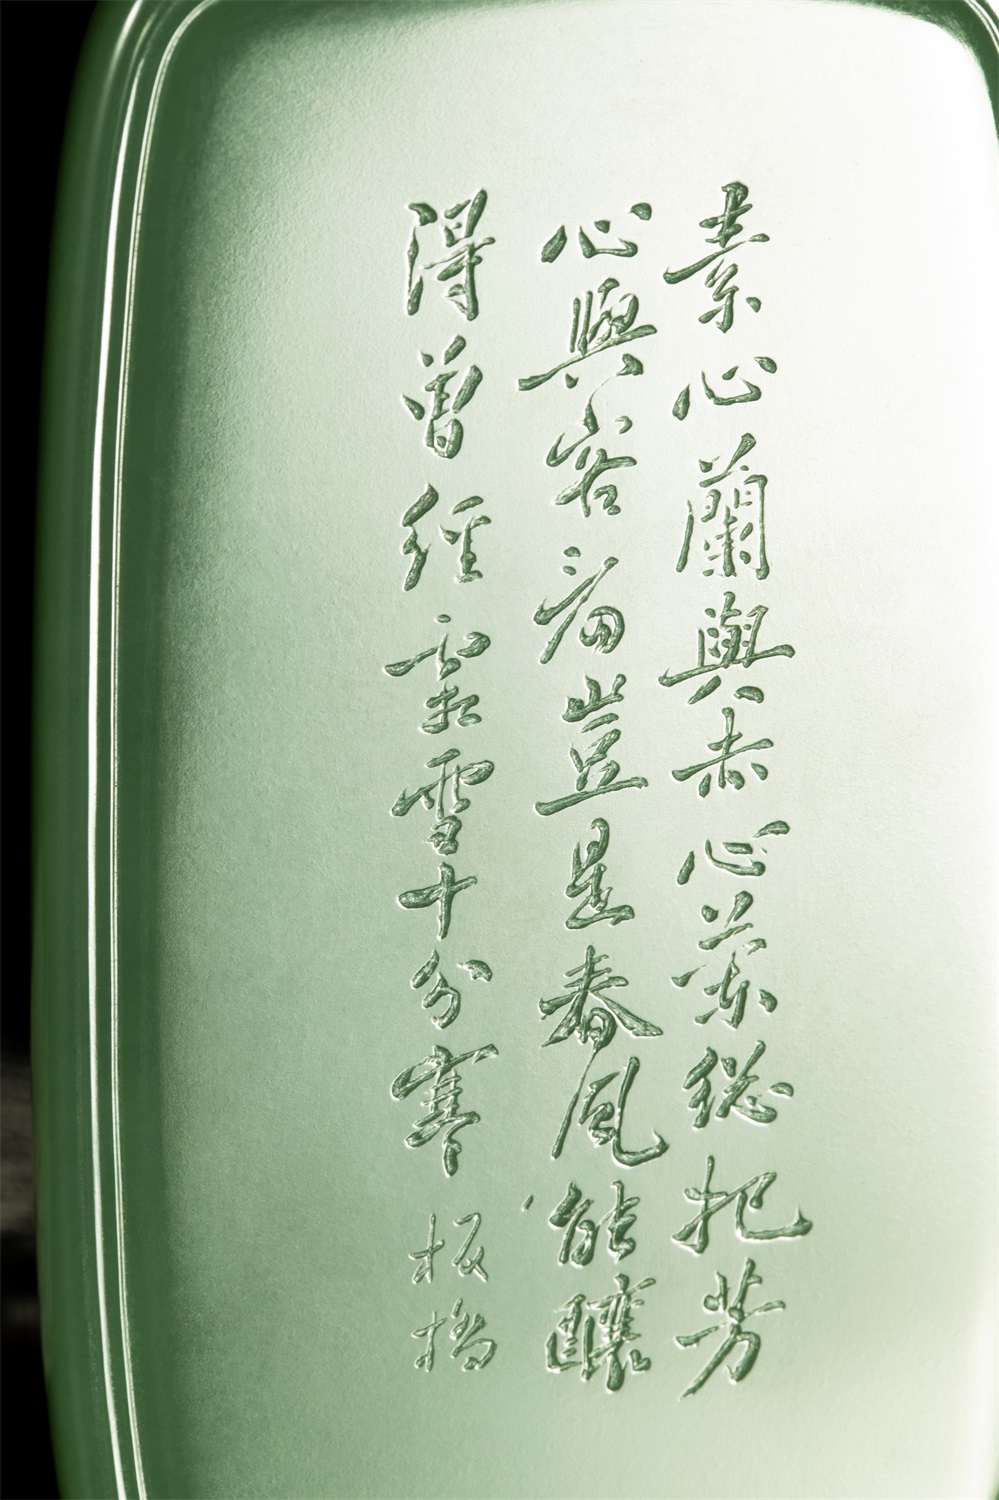 素心蘭與赤心蘭総把芳
心與客看豈是春風能釀
得曾經霜雪十分寒 板橋